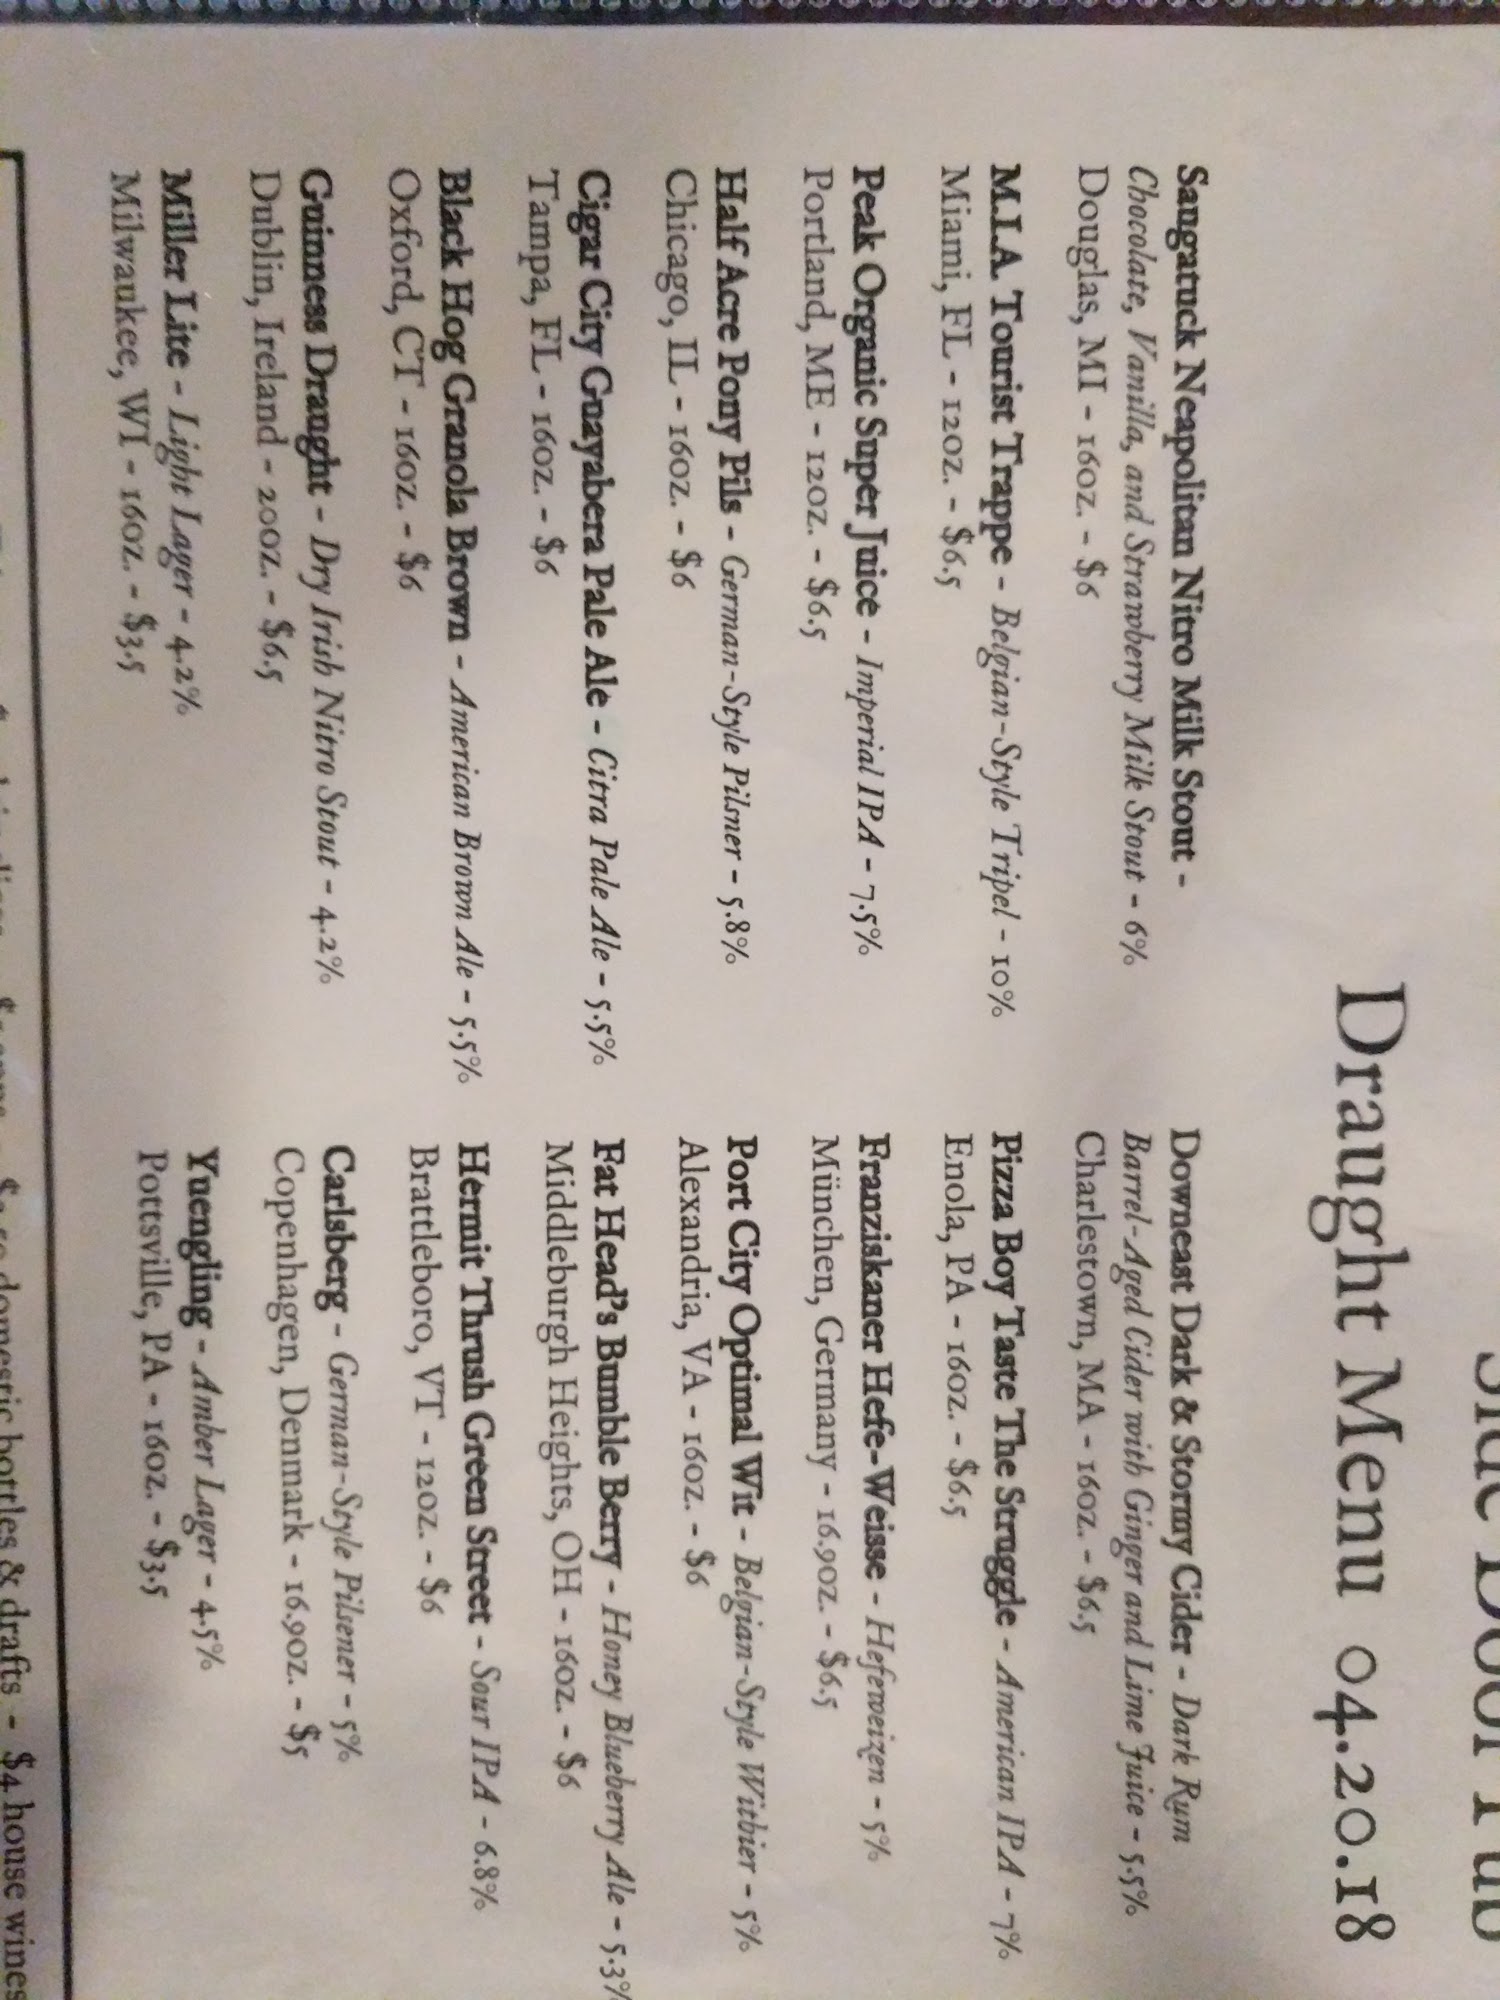 Side Door Pub
Draught Menu 04.20.18
Saugatuck Neapolitan Nitro Milk Stout -
Chocolate, Vanilla, and Strawberry Milk Stout - 6%
Douglas, MI - 16oz. - $6
M.I.A. Tourist Trappe - Belgian-Style Tripel - 10%
Miami, FL - 12oz. - $6.5
Peak Organic Super Juice - Imperial IPA - 7.5%
Portland, ME - 12oz. - $6.5
Half Acre Pony Pils - German-Style Pilsner - 5.8%
Chicago, IL - 16oz. - $6
Cigar City Guayabera Pale Ale - Citra Pale Ale - 5.5%
Tampa, FL - 16oz. - $6
Black Hog Granola Brown - American Brown Ale - 5.5%
Oxford, CT - 16oz. - $6
Guinness Draught - Dry Irish Nitro Stout - 4.2%
Dublin, Ireland - 20oz. - $6.5
Miller Lite - Light Lager - 4.2%
Milwaukee, WI - 16oz. - $3.5
Downeast Dark & Stormy Cider - Dark Rum
Barrel-Aged Cider with Ginger and Lime Juice - 5.5%
Charlestown, MA - 16oz. - $6.5
Pizza Boy Taste The Struggle - American IPA - 7%
Enola, PA - 16oz. - $6.5
Franziskaner Hefe-Weisse - Hefeweizen - 5%
München, Germany - 16.9oz. - $6.5
Port City Optimal Wit - Belgian-Style Witbier - 5%
Alexandria, VA - 16oz. - $6
Fat Head's Bumble Berry - Honey Blueberry Ale - 5.3%
Middleburgh Heights, OH - 16oz. - $6
Hermit Thrush Green Street - Sour IPA - 6.8%
Brattleboro, VT - 12oz. - $6
Carlsberg - German-Style Pilsener - 5%
Copenhagen, Denmark - 16.9oz. - $5
Yuengling - Amber Lager - 4.5%
Pottsville, PA - 16oz. - $3.5
domestic bottles & drafts - $4 house wines